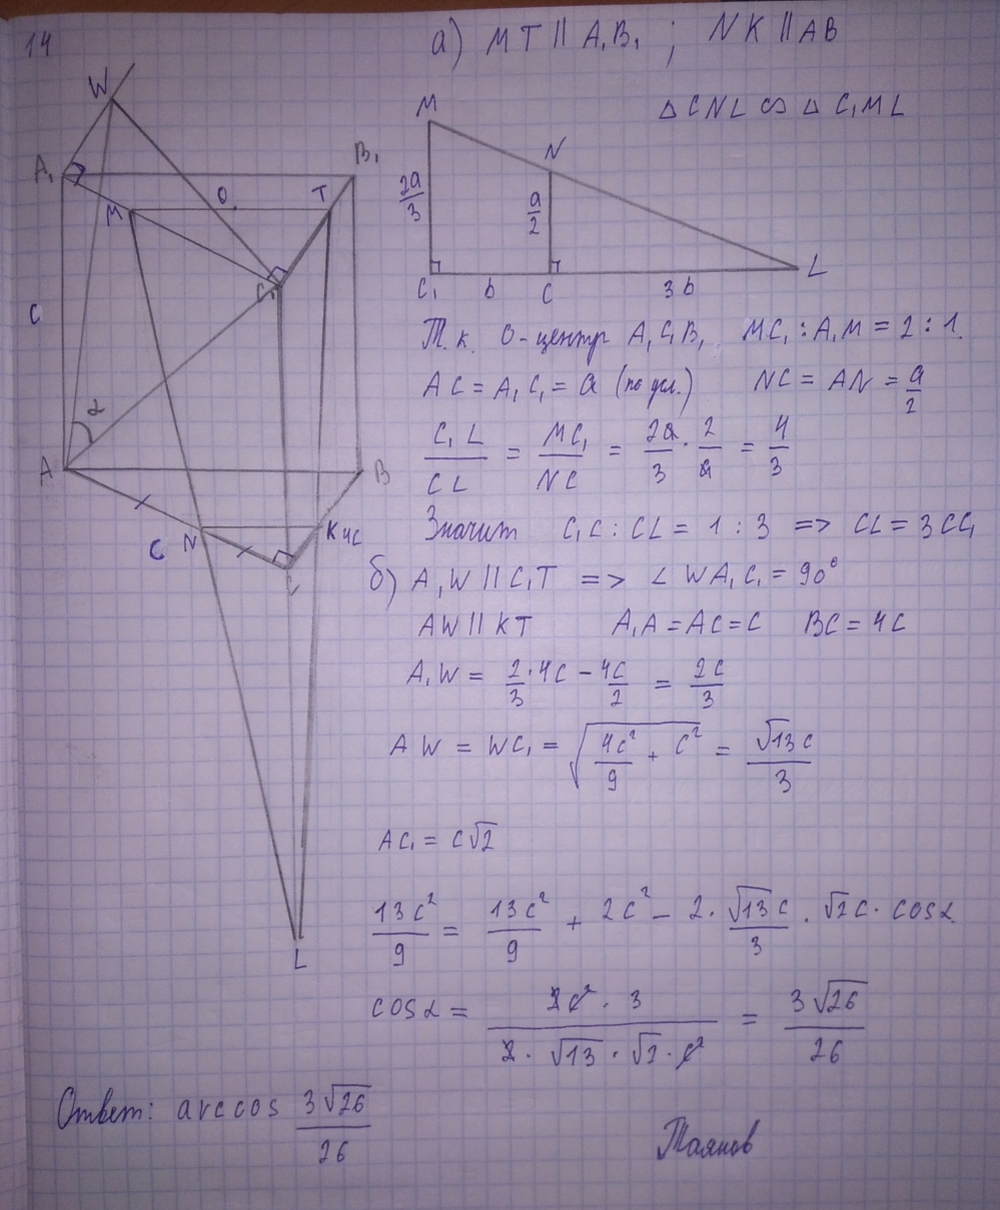 14
а) MT || A₁B₁ ; NK || AB
△CNL ∽ △C₁ML
W
A₁
B₁
M
O
T
C₁
C
α
A
B
C
N
K
4C
C
L
M
N
2a/3
a/2
L
C₁ b C 3b
Т.к. O - центр A₁C₁B₁ MC₁ : A₁M = 2 : 1.
AC = A₁C₁ = a (по усл.) NC = AN = a/2
C₁L/CL = MC₁/NC = 2a/3 · 2/a = 4/3
Значит C₁C : CL = 1 : 3 => CL = 3CC₁
б) A₁W || C₁T => ∠WA₁C₁ = 90°
AW || KT A₁A = AC = C BC = 4C
A₁W = 2/3 · 4C - 4C/2 = 2C/3
AW = WC₁ = √(4C²/9 + C²) = √13C/3
AC₁ = C√2
13C²/9 = 13C²/9 + 2C² - 2 · √13C/3 · √2C · cosα
cosα = 2C² · 3 / 2 · √13 · √2 · C² = 3√26/26
Ответ: arccos 3√26/26
Таянов